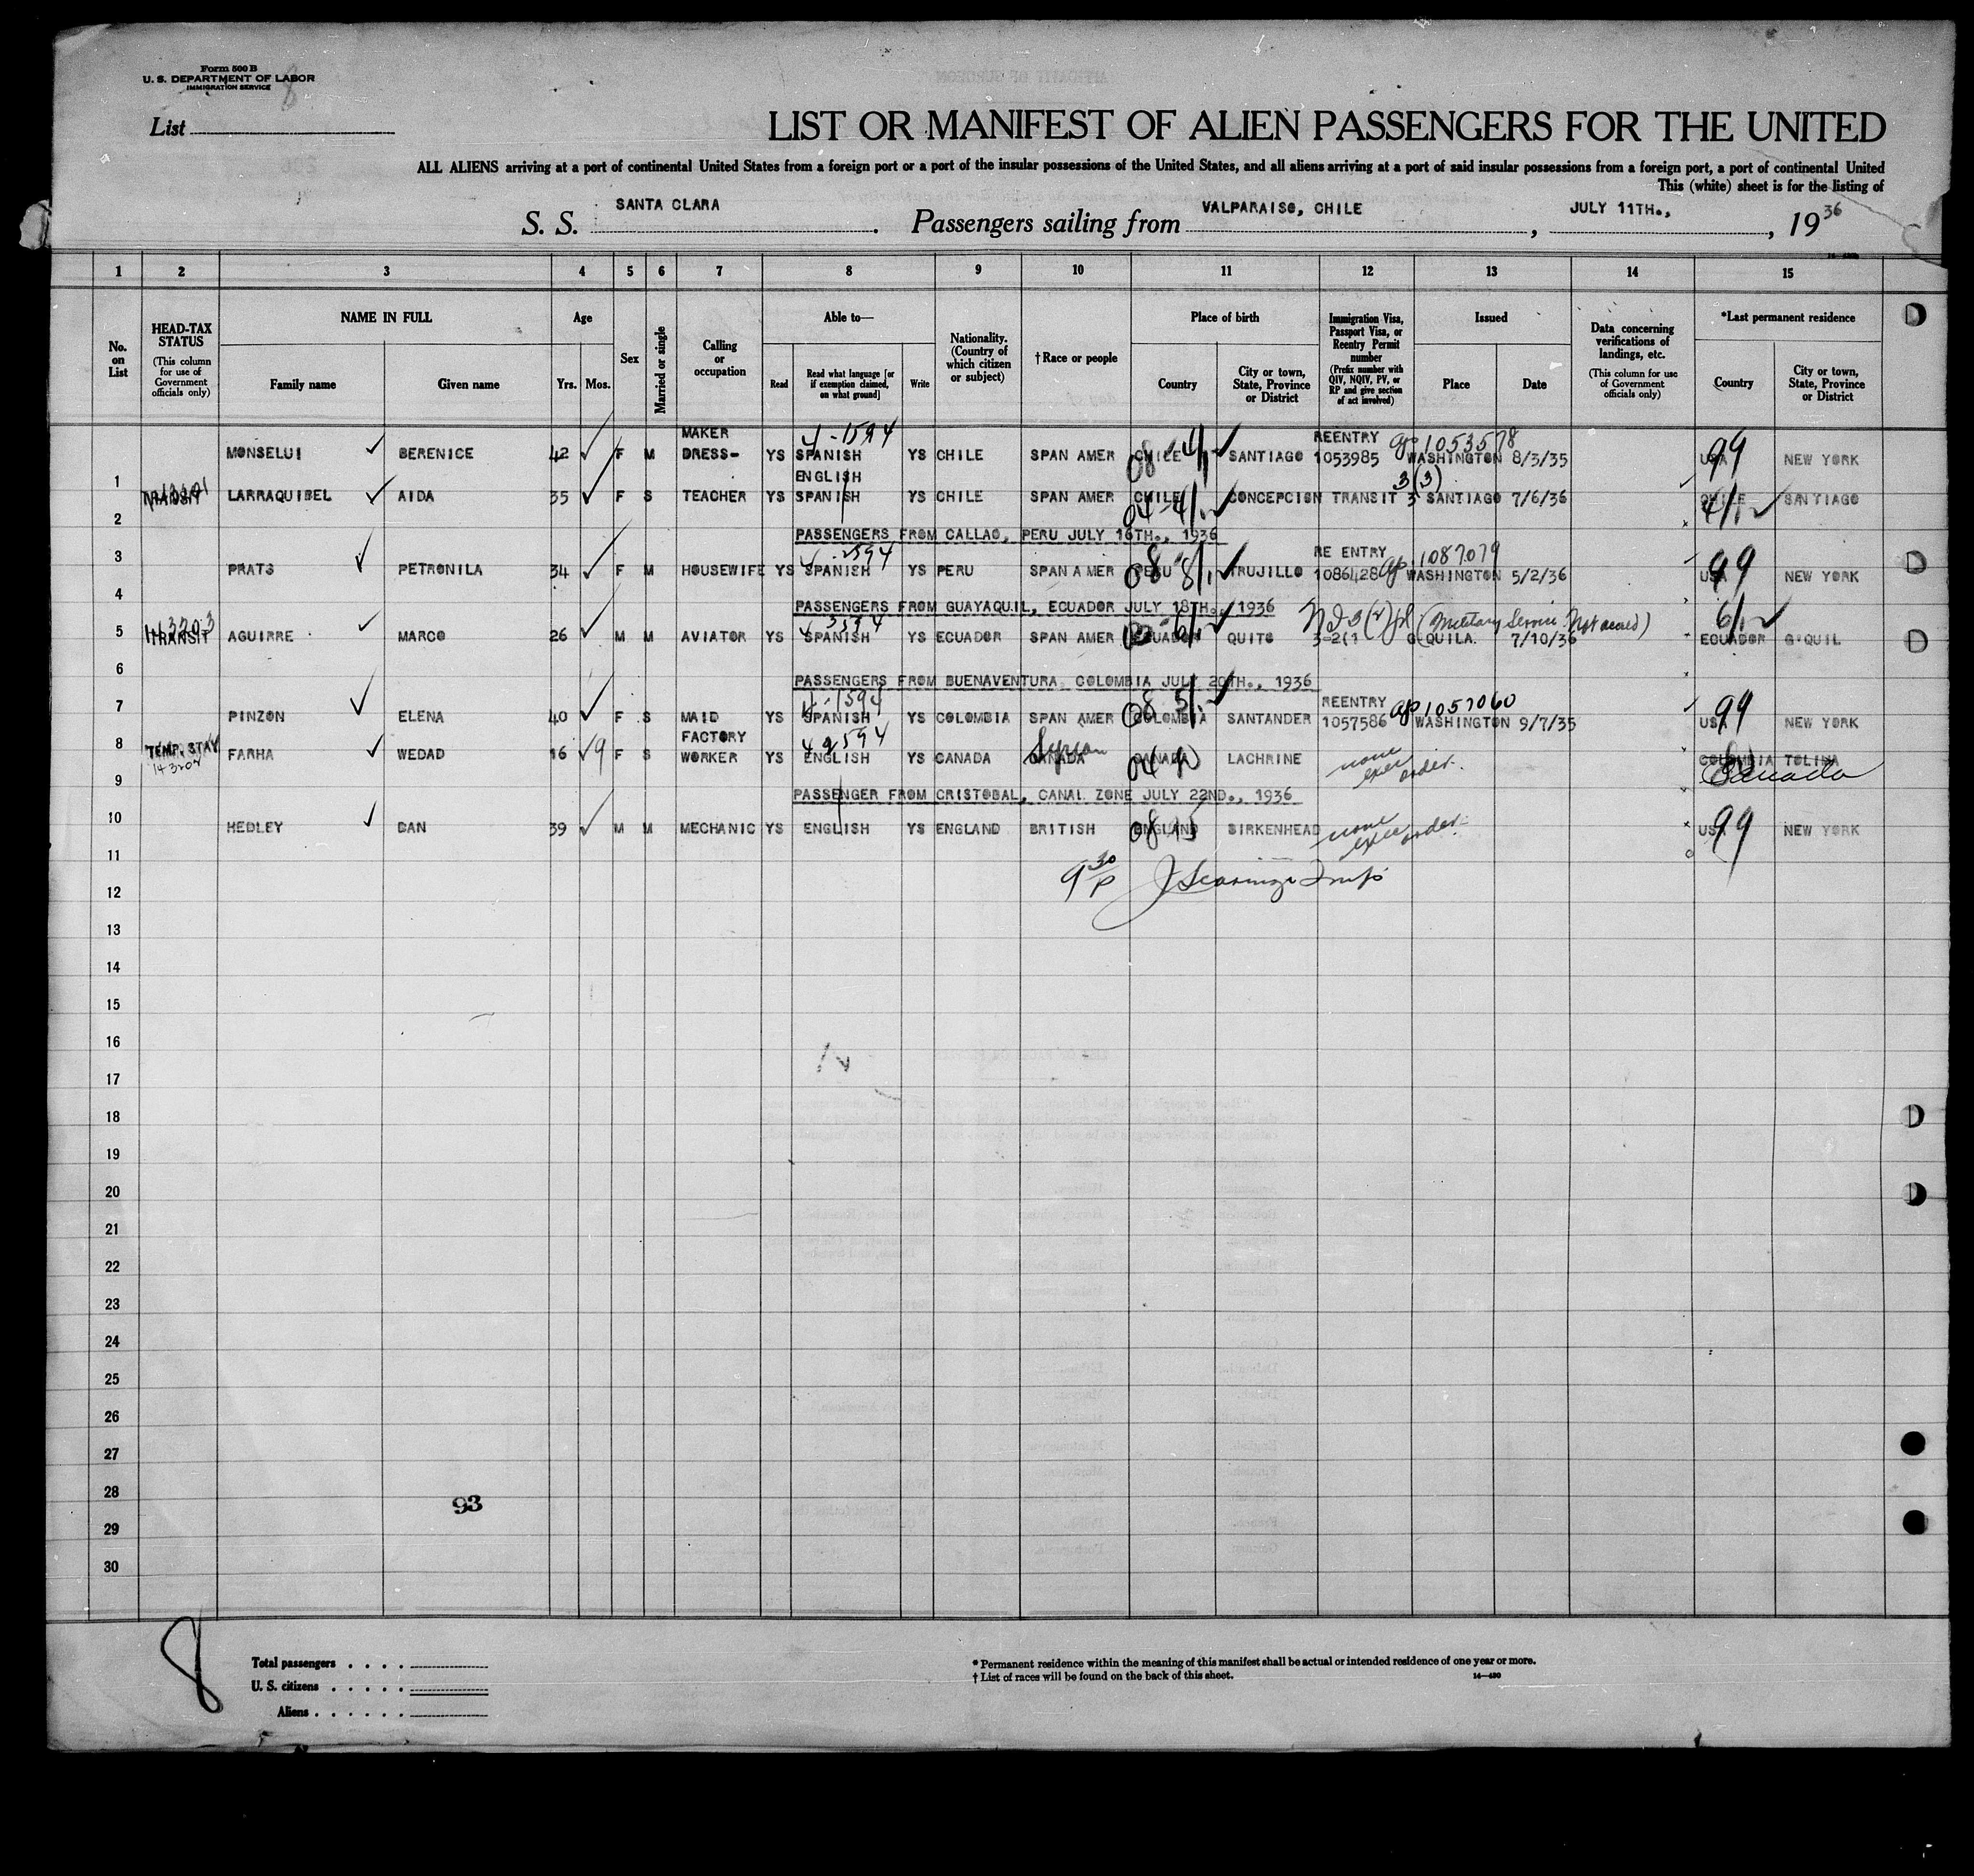 Form 500 B
U. S. DEPARTMENT OF LABOR
IMMIGRATION SERVICE
8
List
LIST OR MANIFEST OF ALIEN PASSENGERS FOR THE UNITED
ALL ALIENS arriving at a port of continental United States from a foreign port or a port of the insular possessions of the United States, and all aliens arriving at a port of said insular possessions from a foreign port, a port of continental United
This (white) sheet is for the listing of
S. S. SANTA CLARA. Passengers sailing from VALPARAISO, CHILE, JULY 11TH., 1936
1 2 3 4 5 6 7 8 9 10 11 12 13 14 15
No. on List
HEAD-TAX STATUS (This column for use of Government officials only)
NAME IN FULL
Family name Given name
Age
Yrs. Mos.
Sex
Married or single
Calling or occupation
Able to—
Read
Read what language [or if exemption claimed, on what ground]
Write
Nationality. (Country of which citizen or subject)
†Race or people
Place of birth
Country
City or town, State, Province or District
Immigration Visa, Passport Visa, or Reentry Permit number (Prefix number with QIV, NQIV, PV, or RP and give section of act involved)
Issued
Place Date
Data concerning verifications of landings, etc. (This column for use of Government officials only)
*Last permanent residence
Country
City or town, State, Province or District
MAKER 4-1594 REENTRY 1053578
MONSELUI BERENICE 42 F M DRESS- YS SPANISH YS CHILE SPAN AMER CHILE SANTIAGO 1053985 WASHINGTON 8/3/35 USA 99 NEW YORK
1 ENGLISH 3(3)
TRANSIT LARRAQUIBEL AIDA 35 F S TEACHER YS SPANISH YS CHILE SPAN AMER CHILE CONCEPCION TRANSIT 3 SANTIAGO 7/6/36 CHILE SANTIAGO
2
PASSENGERS FROM CALLAO, PERU JULY 16TH., 1936
3 RE ENTRY 1087079
PRATS PETRONILA 34 F M HOUSEWIFE YS SPANISH YS PERU SPAN AMER PERU TRUJILLO 1086428 WASHINGTON 5/2/36 USA 99 NEW YORK
4
PASSENGERS FROM GUAYAQUIL, ECUADOR JULY 18TH., 1936
5 TRANSIT AGUIRRE MARCO 26 M M AVIATOR YS SPANISH YS ECUADOR SPAN AMER ECUADOR QUITO 3-2(1 G'QUILA. 7/10/36 ECUADOR G'QUIL
6
PASSENGERS FROM BUENAVENTURA COLOMBIA JULY 20TH., 1936
7 4-1594 REENTRY 1057060
PINZON ELENA 40 F S MAID YS SPANISH YS COLOMBIA SPAN AMER COLOMBIA SANTANDER 1057586 WASHINGTON 9/7/35 USA 99 NEW YORK
8 FACTORY
TEMP. STAY FARHA WEDAD 16 F S WORKER YS ENGLISH YS CANADA CANADA Syrian CANADA LACHRINE none exec order. COLOMBIA TOLIMA
Canada
9
PASSENGER FROM CRISTOBAL, CANAL ZONE JULY 22ND., 1936
10
HEDLEY DAN 39 M M MECHANIC YS ENGLISH YS ENGLAND BRITISH ENGLAND BIRKENHEAD none exec order. USA 99 NEW YORK
11
9 30 P
12
13
14
15
16
17
18
19
20
21
22
23
24
25
26
27
28
93
29
30
8
Total passengers
U. S. citizens
Aliens
* Permanent residence within the meaning of this manifest shall be actual or intended residence of one year or more.
† List of races will be found on the back of this sheet.
14—480